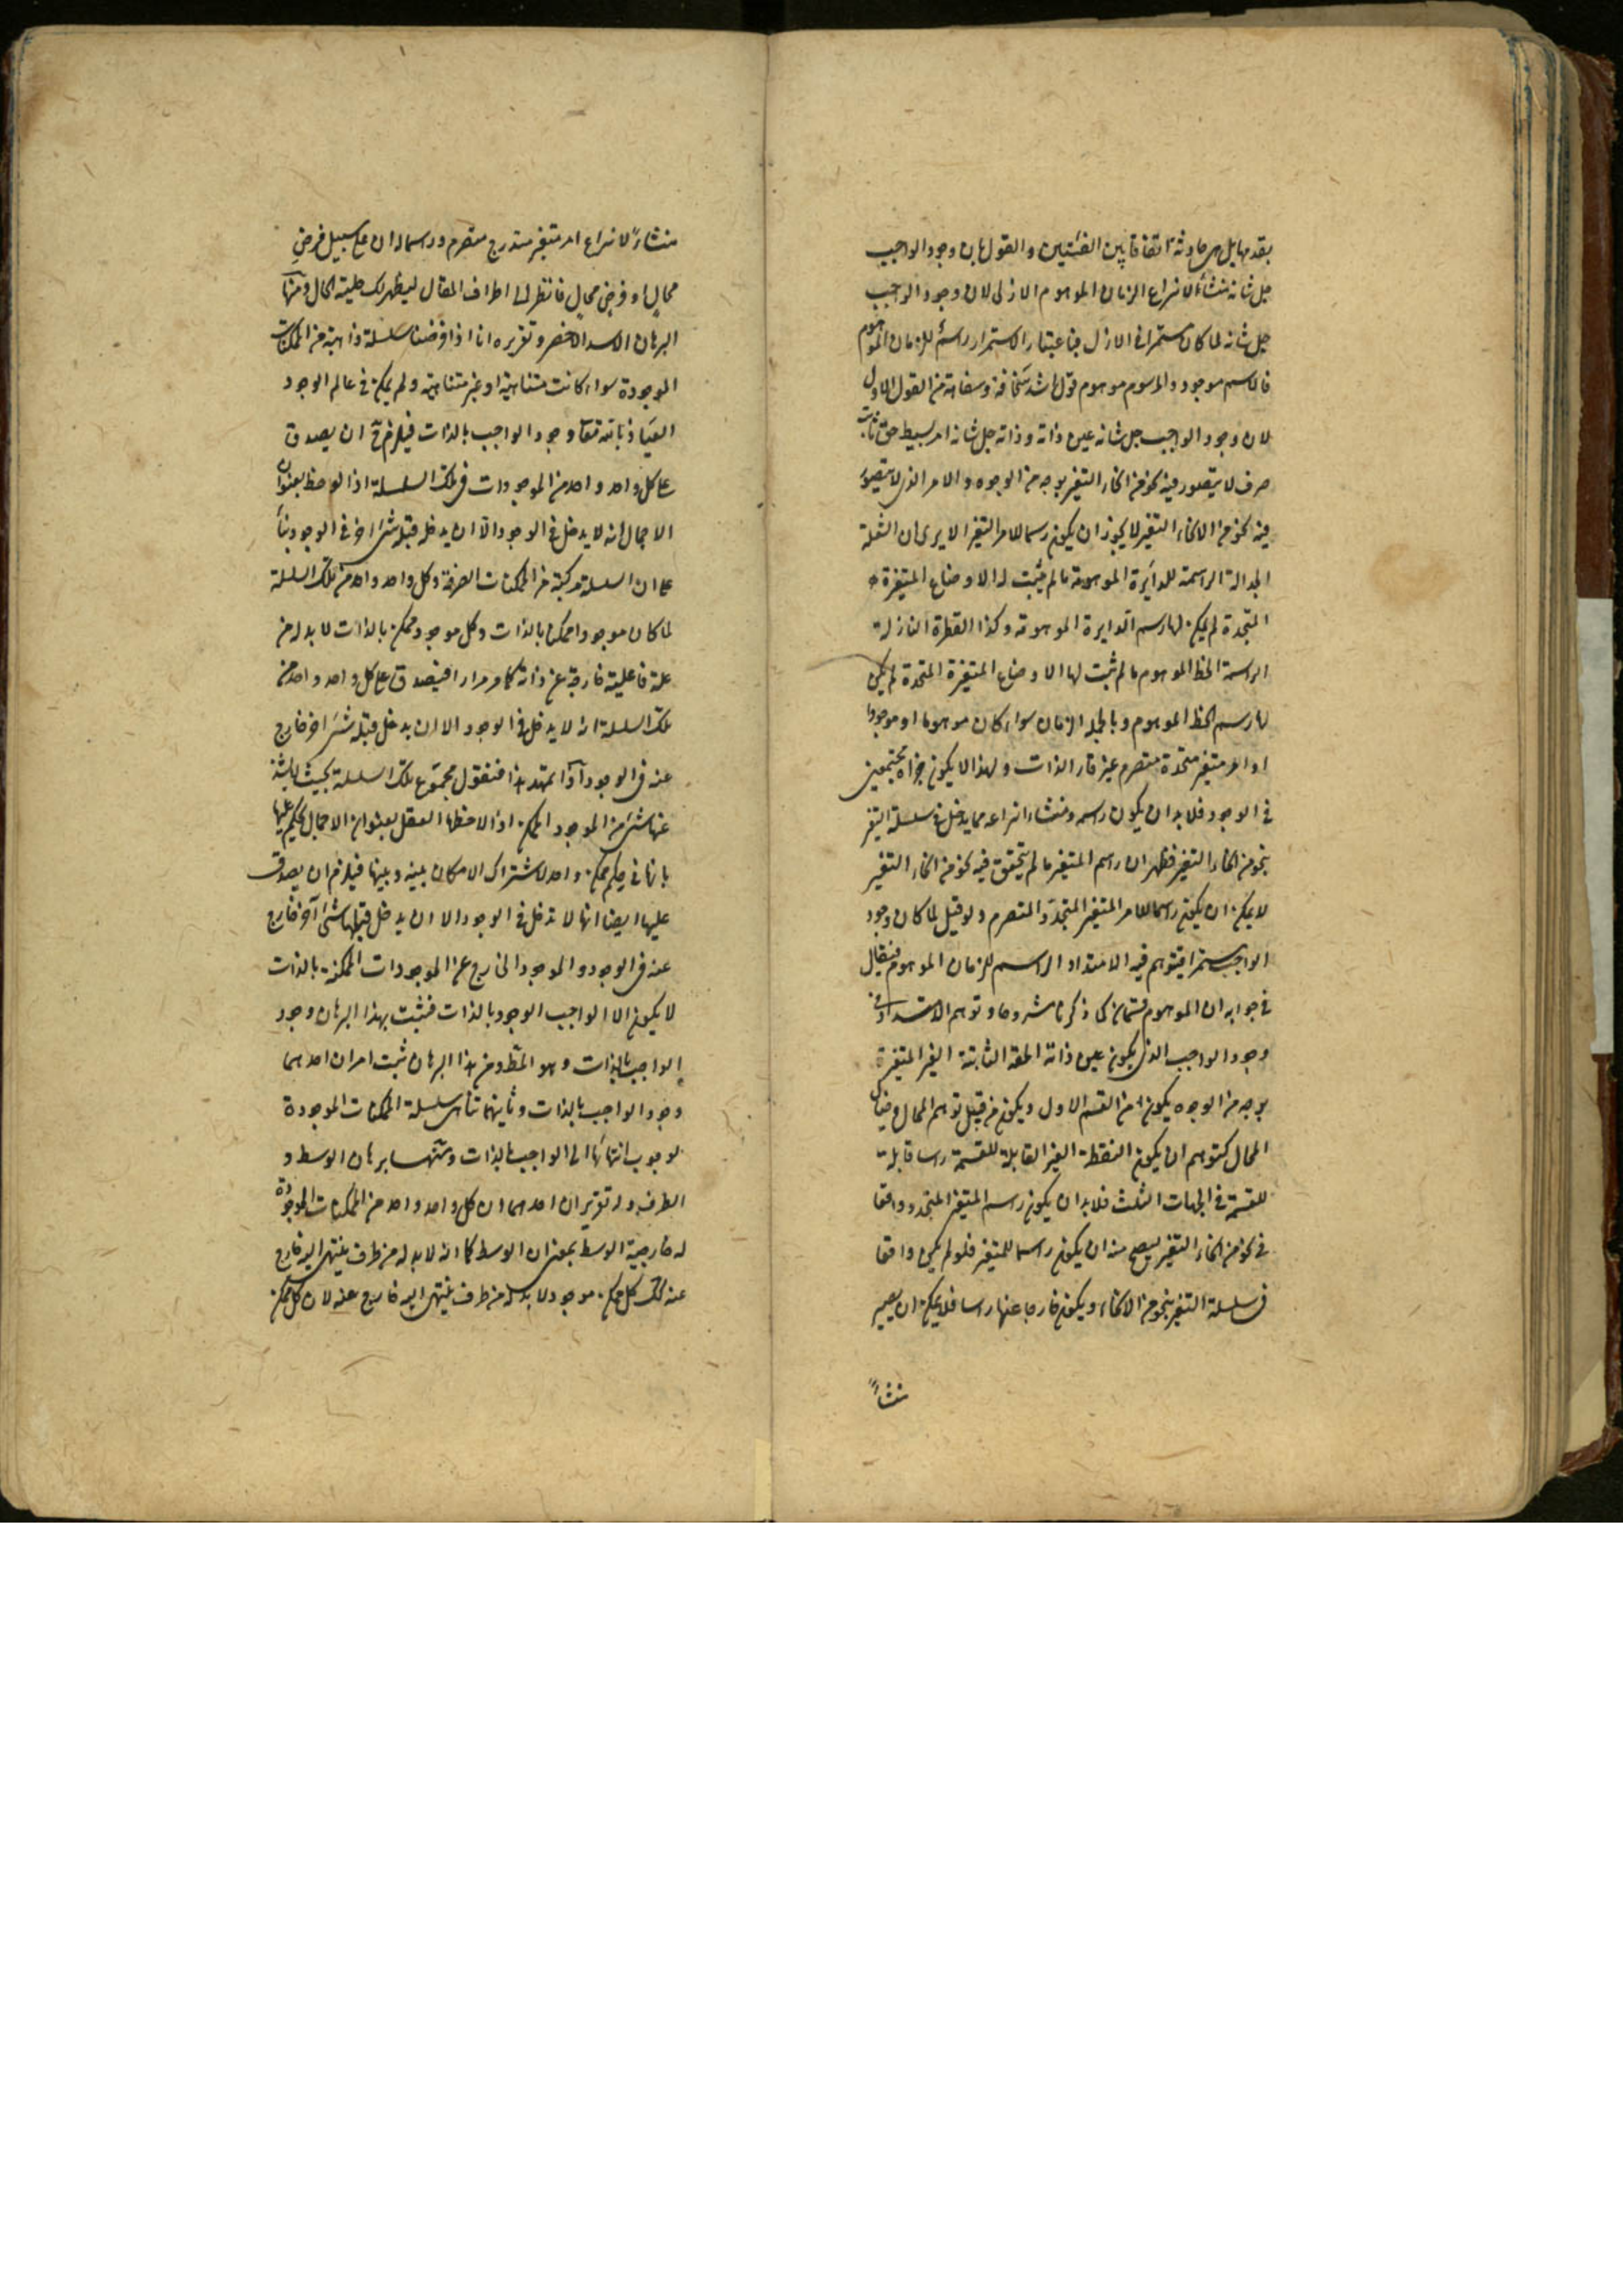 بقدمها بل هي حادثة اتفاقا بين الفئتين والقول بان وجود الواجب
جل شانه منشأ لانتزاع الزمان الموهوم الازلي لان وجود الواجب
جل شانه لما كان مستمرا في الازل فباعتبار الاستمرار راسم للزمان الموهوم
فالراسم موجود والمرسوم موهوم قول اشد سخافة وسفاهة من القول الاول
لان وجود الواجب جل شانه عين ذاته وذاته جل شانه امر بسيط حق ثابت
صرف لا يتصور فيه نحو من انحاء التغير بوجه من الوجوه والامر الذي لا يتصور
فيه نحو من الانحاء التغير لا يجوز ان يكون راسما للامر المتغير الا يرى ان الشعلة
الجوالة الراسمة للدائرة الموهومة ما لم يثبت له الاوضاع المتغيرة
المتجددة لم يكن لها رسم الدايرة الموهومة وكذا القطرة النازلة
الراسمة الخط الموهوم ما لم ثبت لها الاوضاع المتغيرة المتجددة لم يكن
لها رسم الخط الموهوم وبالجملة الزمان سواء كان موهوما او موجودا
امر متغير متجدد متصرم غير قار الذات ولهذا لا يكون جزاه مجتمعين
في الوجود فلا بد ان يكون راسمه ومنشاء انتزاعه مما يدخل في سلسلة التغير
بنحو من انحاء التغير فظهر ان راسم المتغير ما لم يتحقق فيه نحو من انحاء التغير
لا يمكن ان يكون راسما للامر المتغير المتجدد والمتصرم ولو قيل لما كان وجود
الواجب مستمرا فيتوهم فيه الامتداد الراسم للزمان الموهوم فيقال
في جوابه ان الموهوم قسمان كما ذكرنا مشروحا وتوهم الامتداد في
وجود الواجب الذي يكون عين ذاته الحقة الثابتة الغير المتغيرة
بوجه من الوجوه يكون من القسم الاول ويكون من قبيل توهم المحال وفرض
المحال كتوهم ان يكون النقطة الغير القابلة للقسمة راسما قابلة
للقسمة في الجهات الثلث فلا بد ان يكون راسم المتغير المتجدد واقعا
في نحو من انحاء التغير ليصح منه ان يكون راسما للمتغير فلو لم يكن واقعا
في سلسلة التغير بنحو من الانحاء ويكون خارجا عنها راسا فلا يمكن ان يصير
منشاءً
منشاءً لانتزاع امر متغير متدرج متصرم وراسما له ان على سبيل فرض
محال او فرض محال فانظر الى اطراف المقال ليظهر لك جلية الحال ومنها
البرهان الاسد الاخصر وتقريره انا اذا فرضنا سلسلة ذاهبة من الممكنات
الموجودة سواء كانت متناهية او غير متناهية ولم يكن في عالم الوجود
العياذ بالله تعا وجود الواجب بالذات فيلزم ح ان يصدق
على كل واحد واحد من الموجودات في تلك السلسلة اذا لوحظ بعنوان
الاجمال انه لا يدخل في الوجود الا ان يدخل قبله شئ اخر في الوجود بناء
على ان السلسلة مركبة من الممكنات الصرفة وكل واحد واحد من تلك السلسلة
لما كان موجودا ممكنا بالذات وكل موجود ممكن بالذات لا بد له من
علة فاعلية خارجة عن ذاته كما مر مرارا فيصدق على كل واحد واحد من
تلك السلسلة انه لا يدخل في الوجود الا ان يدخل قبله شئ اخر خارج
عنه في الوجود اذا تمهد هذا فنقول مجموع تلك السلسلة بحيث لا يشذ
عنها شئ من الموجود الممكن اذا لاحظها العقل بعنوان الاجمال يحكم عليها
بانها في حكم ممكن واحد لاشتراك الامكان بينه وبينها فيلزم ان يصدق
عليها ايضا انها لا تدخل في الوجود الا ان يدخل قبلها شئ آخر خارج
عنه في الوجود والموجود الخارج عن الموجودات الممكنة بالذات
لا يكون الا الواجب الوجود بالذات فثبت بهذا البرهان وجود
الواجب بالذات وهو المط ومن هذا البرهان ثبت امران احدهما
وجود الواجب بالذات وثانيهما تناهى سلسلة الممكنات الموجودة
لوجوب انتهائها الى الواجب بالذات ومنها برهان الوسط و
الطرف وله تقريران احدهما ان كل واحد واحد من الممكنات الموجودة
له خارجية الوسط بمعنى ان الوسط كما انه لا بد له من طرف ينتهى اليه خارج
عنه كذلك كل ممكن موجود لا بد له من طرف ينتهى اليه خارج عنه لان كل ممكن